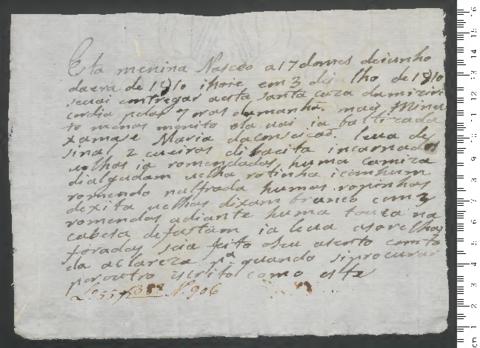 Esta menina Nasceo a 17 domes deiunho
daera de 1810 ihoie em 3 de lho de 1810
seuai entregar aesta santa caza damiziri
cordia pelas 7 oras damanhã mais Minu
to menos menito ela uai ia battizada
xamase Maria daConseicaõ. leua de
sinal 2 cueiros dibaeta incarnados
uelhos ia romendados huma camiza
dialgudam uelha rotinha icumhum
romendo nafrada humas roupinhas
dexita uelhas dixam branco com
romendos adiante huma touca na
cabesa defustam ia leua asorelhas
foradas saia feito oseu asento comto
da aclareza pª quando siprocurar
poroutro escrito como este
Lº 55 f 388 N. 906